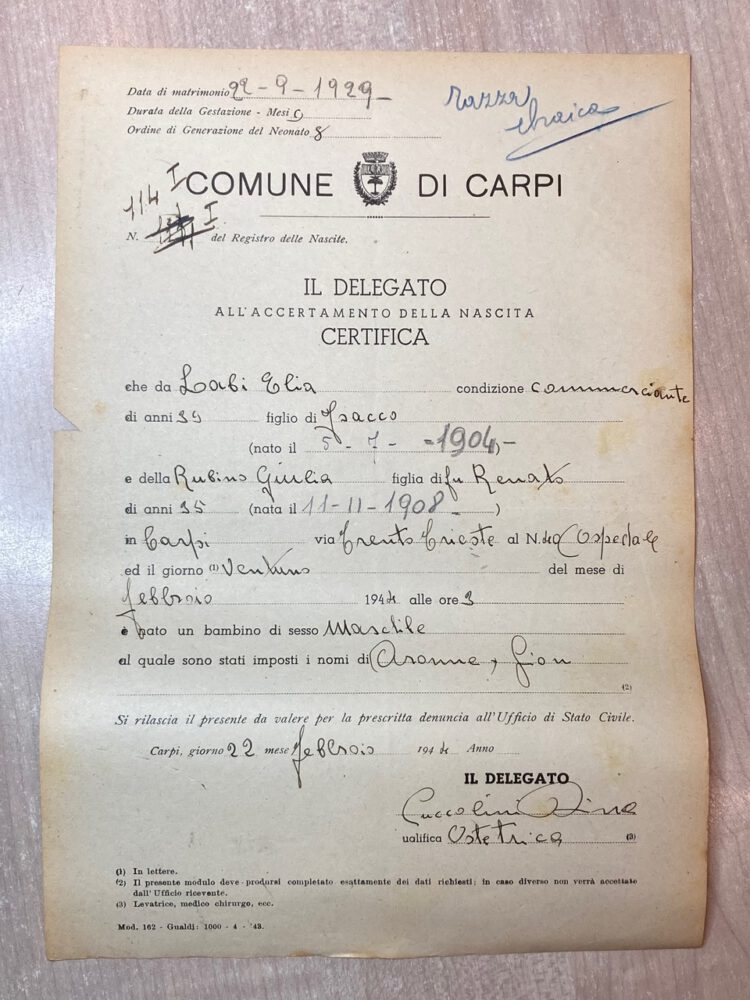 Data di matrimonio 22-9-1929
razza
ebraica
Durata della Gestazione - Mesi 9
Ordine di Generazione del Neonato 8
COMUNE DI CARPI
114 I
N. I del Registro delle Nascite.
IL DELEGATO
ALL'ACCERTAMENTO DELLA NASCITA
CERTIFICA
che da Labi Elia condizione commerciante
di anni 39 figlio di Isacco
(nato il 5-7-1904)
e della Rubino Giulia figlia di fu Renato
di anni 35 (nata il 11-11-1908)
in Carpi via Trento Trieste al N. Ospedale
ed il giorno (1) Ventuno del mese di
febbraio 1944 alle ore 3
è nato un bambino di sesso Maschile
al quale sono stati imposti i nomi di Aronne, Gion
(2)
Si rilascia il presente da valere per la prescritta denuncia all'Ufficio di Stato Civile.
Carpi, giorno 22 mese febbraio 1944 Anno
IL DELEGATO
Cuccolini Dina
ualifica Ostetrica (3)
(1) In lettere.
(2) Il presente modulo deve prodursi completato esattamente dei dati richiesti; in caso diverso non verrà accettato
dall'Ufficio ricevente.
(3) Levatrice, medico chirurgo, ecc.
Mod. 162 - Gualdi: 1000 - 4 - '43.